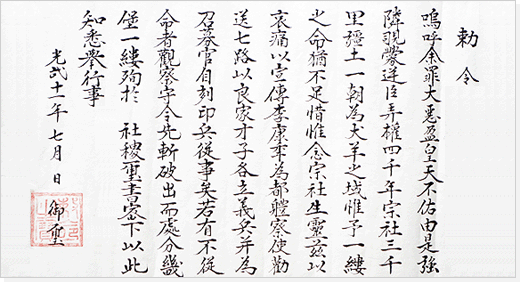 勅令
嗚呼余罪大惡盈皇天不佑由是強
隣覬釁逆臣弄權四千年宗社三千
里疆土一朝為犬羊之域惟予一縷
之命猶不足惜惟念宗社生靈茲以
哀痛以宣傳李康秊為都軆察使勸
送七路以良家才子各立義兵并為
召募官自刻印兵從事矣若有不從
命者觀察守令先斬破出而處分幾
堡一縷殉於 社稷璽書密下以此
知悉擧行事
光武十一年七月 日 御璽